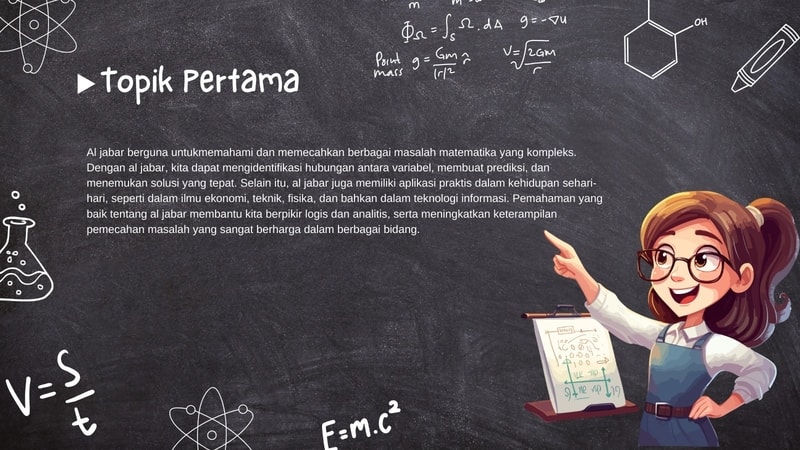 m
Φ_Ω = ∫_S Ω . dA
g = -∇u
Point mass g = Gm/|r|² r̂
V = √2GM/r
OH
Topik Pertama
Al jabar berguna untukmemahami dan memecahkan berbagai masalah matematika yang kompleks.
Dengan al jabar, kita dapat mengidentifikasi hubungan antara variabel, membuat prediksi, dan
menemukan solusi yang tepat. Selain itu, al jabar juga memiliki aplikasi praktis dalam kehidupan sehari-
hari, seperti dalam ilmu ekonomi, teknik, fisika, dan bahkan dalam teknologi informasi. Pemahaman yang
baik tentang al jabar membantu kita berpikir logis dan analitis, serta meningkatkan keterampilan
pemecahan masalah yang sangat berharga dalam berbagai bidang.
V=S/t
E=m.c²